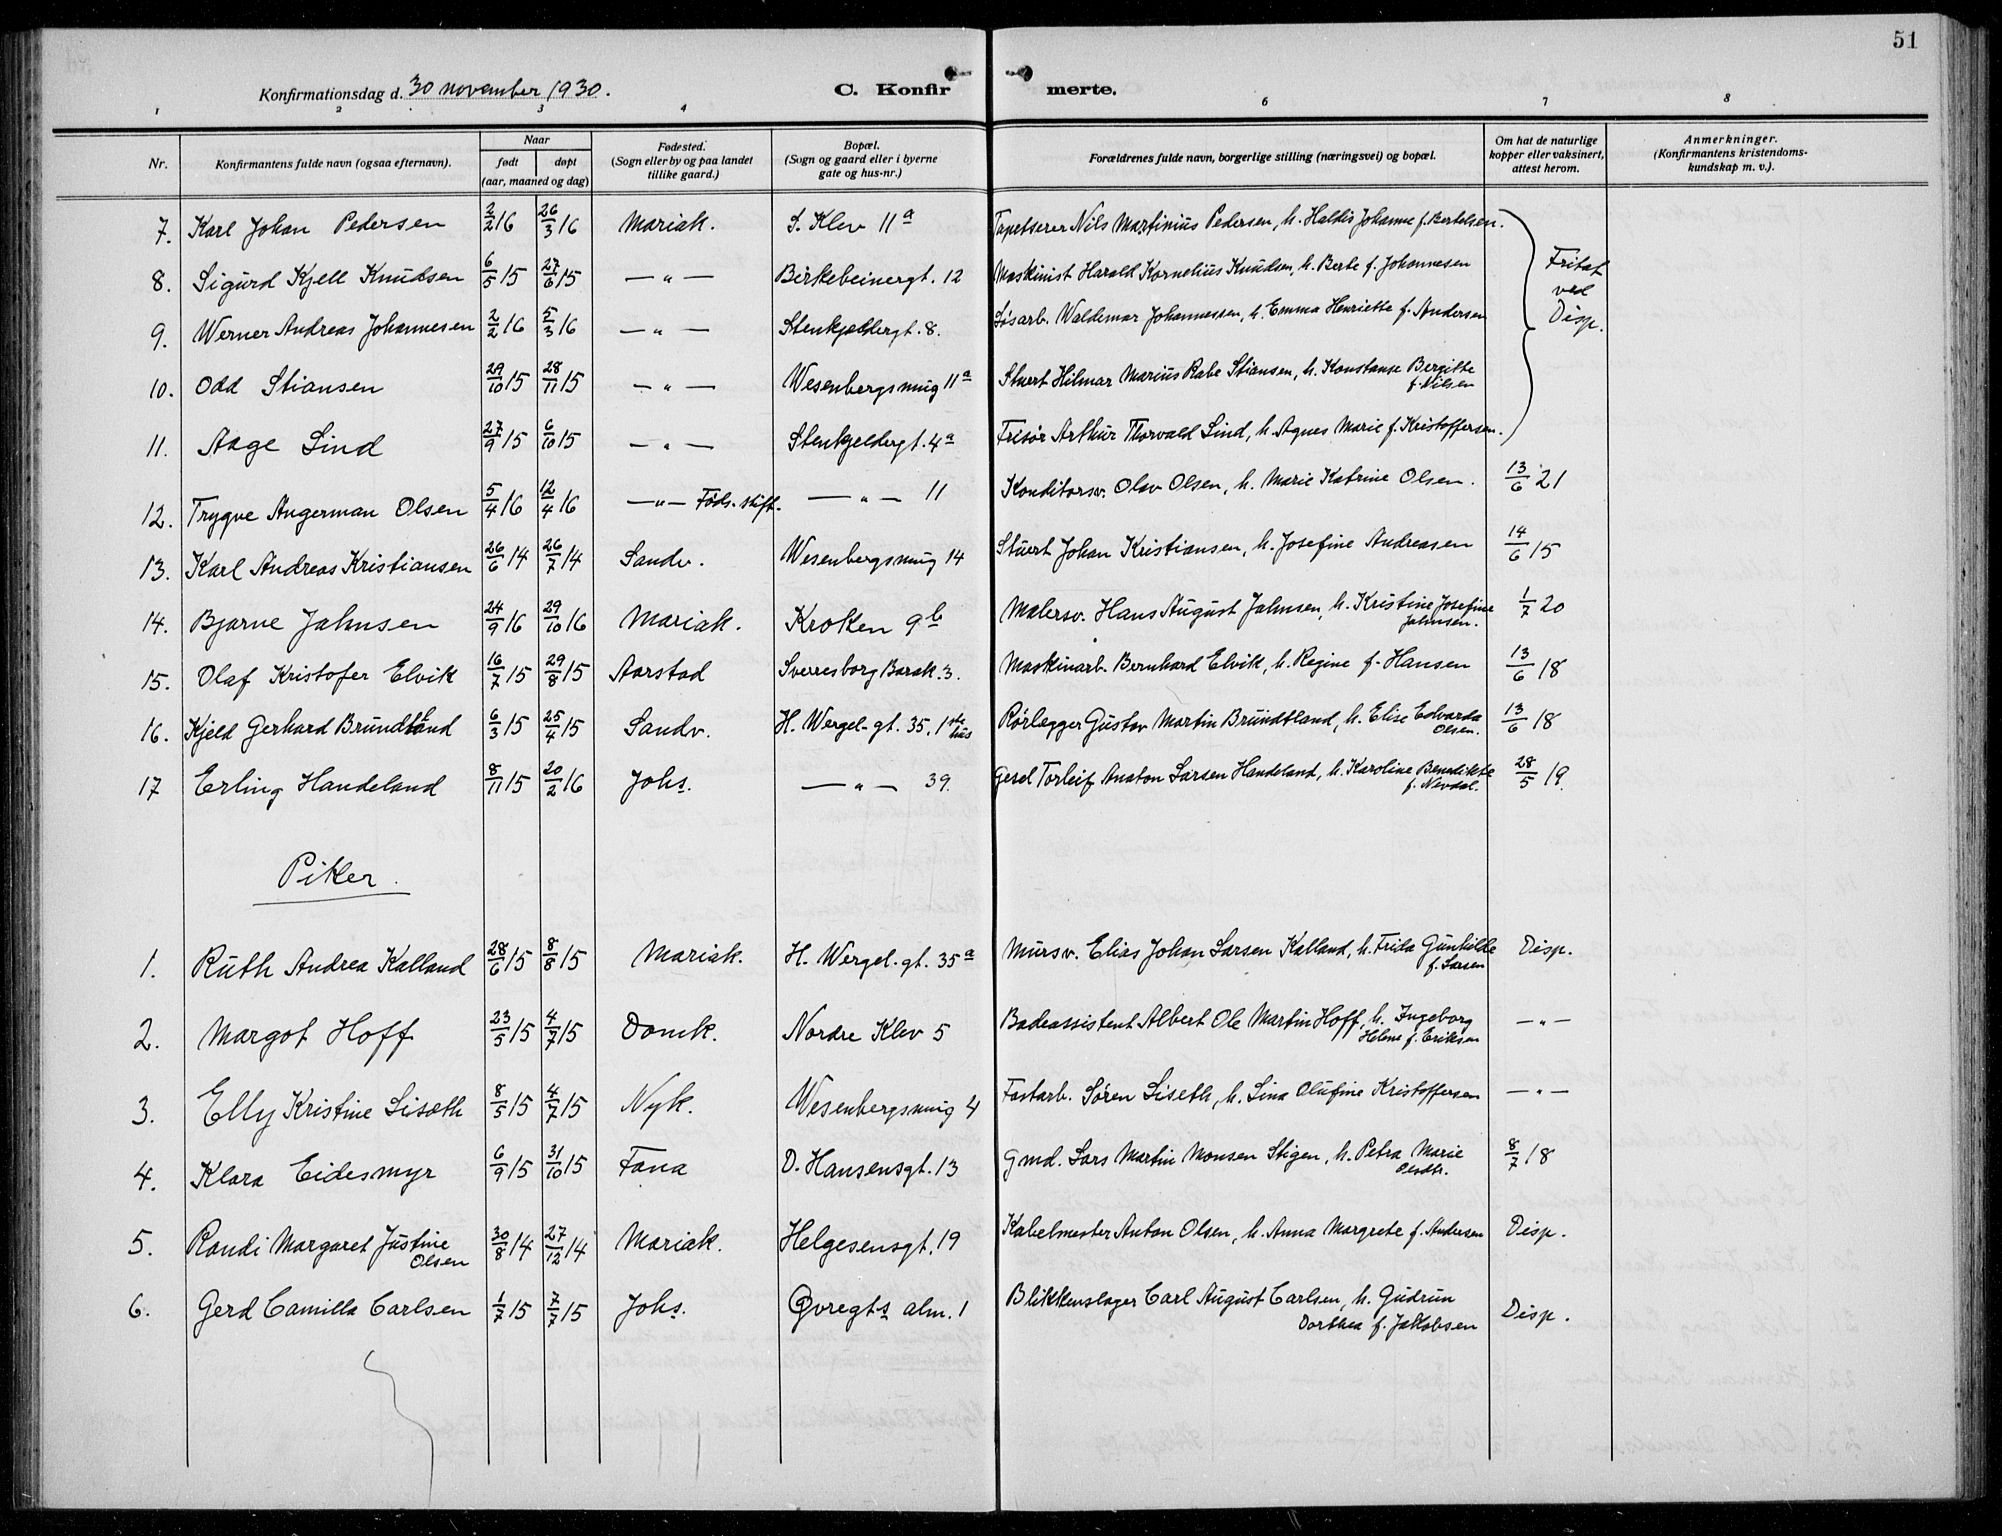 51
Konfirmationsdag d. 30 november 1930.
C. Konfirmerte.
1 2 3 4 6 7 8
Nr. | Konfirmantens fulde navn (ogsaa efternavn). | Naar født døpt (aar, maaned og dag) | Fødested. (Sogn eller by og paa landet tillike gaard.) | Bopæl. (Sogn og gaard eller i byerne gate og hus-nr.) | Forældrenes fulde navn, borgerlige stilling (næringsvei) og bopæl. | Om hat de naturlige kopper eller vaksinert, attest herom. | Anmerkninger. (Konfirmantens kristendomskundskap m. v.).
7. Karl Johan Pedersen 2/2 16 26/3 16 Mariak. S. Klev 11a Tapetserer Nils Martinius Pedersen, h. Haldis Johanne f. Bertelsen. Fritat ved Disp.
8. Sigurd Kjell Knudsen 6/5 15 27/6 15 —"— Birkebeinergt. 12 Maskinist Harald Kornelius Knudsen, h. Berte f. Johannesen
9. Werner Andreas Johannesen 2/2 16 5/3 16 —"— Stenkjeldergt. 8. Løsarb. Waldemar Johannessen, h. Emma Henriette f. Andersen
10. Odd Stiansen 29/10 15 28/11 15 —"— Wesenbergsmug 11a Stuert Hilmar Marius Rabe Stiansen, h. Konstanse Bergitte f. Nilsen
11. Aage Lind 27/9 15 6/10 15 —"— Stenkjeldergt. 4a Frisør Arthur Thorvald Lind, h. Agnes Marie f. Kristoffersen.
12. Trygve Angerman Olsen 5/4 16 12/4 16 —"— Føds. stift. —"— 11 Konditorsv. Olav Olsen, h. Marie Katrine Olsen. 13/6 21
13. Karl Andreas Kristiansen 26/6 14 26/7 14 Sandv. Wesenbergsmug 14 Stuert Johan Kristiansen, h. Josefine Andreasen 14/6 15
14. Bjarne Jahnsen 24/9 16 29/10 16 Mariak. Kroken 9b Malersv. Hans August Jahnsen, h. Kristine Josefine Jahnsen. 1/7 20
15. Olaf Kristofer Elvik 16/7 15 29/8 15 Aarstad Sverresborg Barak. 3. Maskinarb. Bernhard Elvik, h. Regine f. Hansen 13/6 18
16. Kjeld Gerhard Brundtland 6/3 15 25/4 15 Sandv. H. Wergel-gt. 35, 1ste hus Rørlegger Gustav Martin Brundtland, h. Elise Edvarda Olsen. 13/6 18
17 Erling Handeland 8/11 15 20/2 16 Johs. —"— 39. Gesel Torleif Anaton Larsen Handeland, h. Karoline Benedikte f. Nevdal. 28/5 19.
Piker.
1. Ruth Andrea Kalland 28/6 15 8/8 15 Mariak. H. Wergel.gt. 35a Mursv. Elias Johan Larsen Kalland, h. Frida Gunhilde f. Larsen Disp.
2. Margot Hoff 23/5 15 4/7 15 Domk. Nordre Klev 5 Badeassistent Albert Ole Martin Hoff, h. Ingeborg Helene f. Eriksen —"—
3. Elly Kristine Lisæth 8/5 15 4/7 15 Nyk. Wesenbergsmug 4 Fastarb. Søren Liseth, h. Lina Olufine Kristoffersen —"—
4. Klara Eidesmyr 6/9 15 31/10 15 Fana D. Hansensgt. 13 Gmd. Lars Martin Monsen Stigen, h. Petra Marie Olsdtr. 8/7 18
5. Randi Margaret Justine Olsen 30/8 14 27/12 14 Mariak. Helgesensgt. 19 Kabelmester Anton Olsen, h. Anna Margrete f. Andersen Disp.
6. Gerd Camilla Carlsen 1/7 15 7/7 15 Johs. Øvregts alm. 1 Blikkenslager Carl August Carlsen, h. Gudrun Dorthea f. Jakobsen Disp.